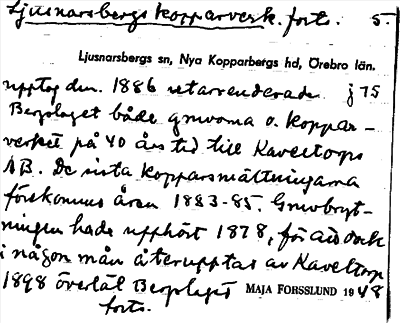 Ljusnarsbergs kopparverk. forts. 5.
Ljusnarsbergs sn, Nya Kopparbergs hd, Örebro län.
upptog den. 1886 utarrenderade j 75
Bergslaget både gruvorna o. koppar-
verket på 40 års tid till Kaveltorps
AB. De sista kopparsmältningarna
förekommo åren 1883-85. Gruvbryt-
ningen hade upphört 1878, för att dock
i någon mån återupptas av Kaveltorp
1898 överlät Bergslaget MAJA FORSSLUND 1948
forts.